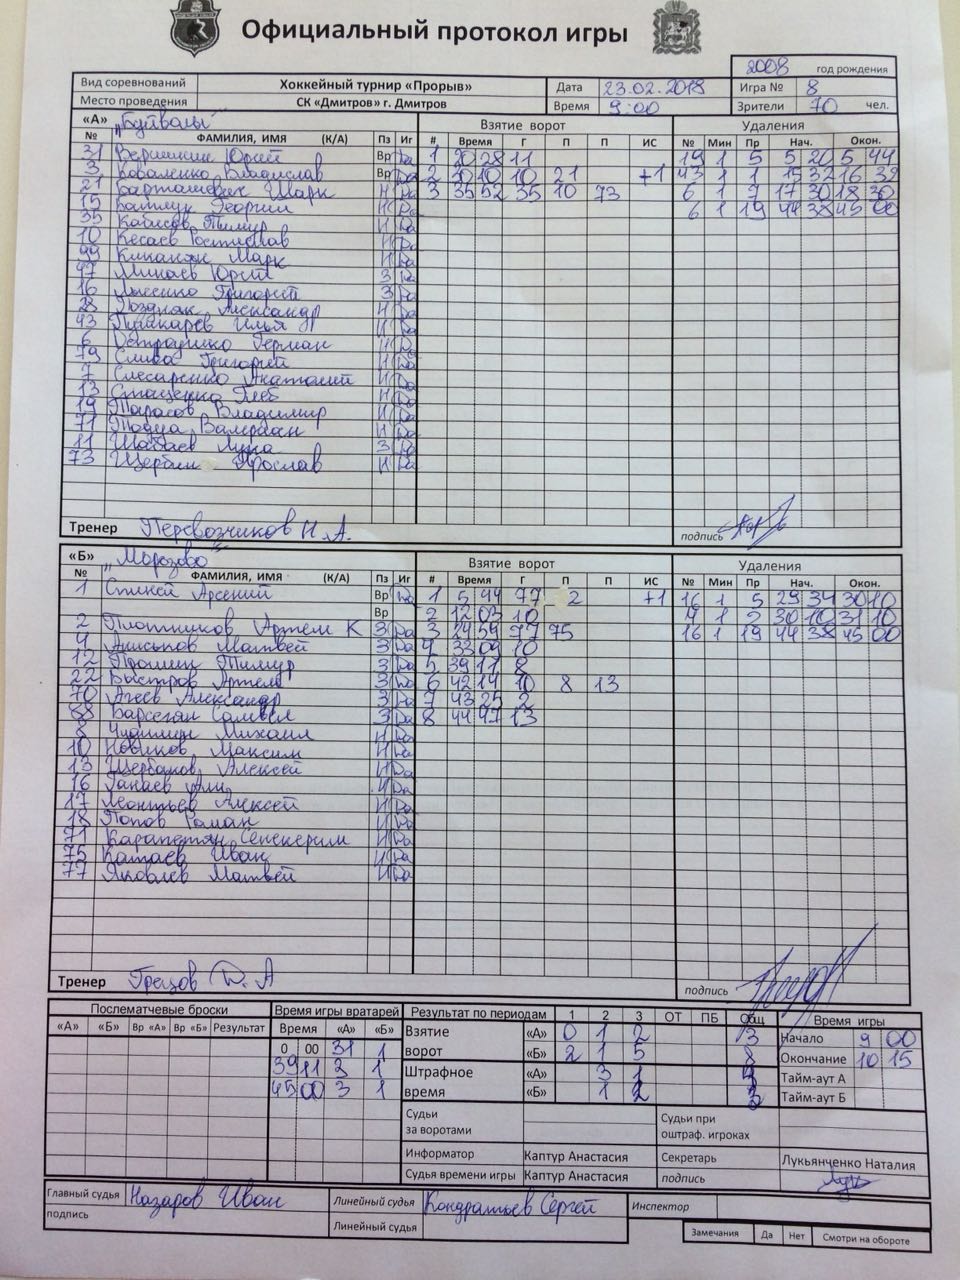 Официальный протокол игры
2008 год рождения
Вид соревнований Хоккейный турнир «Прорыв» Дата 23.02.2018 Игра № 8
Место проведения СК «Дмитров» г. Дмитров Время 9:00 Зрители 70 чел.
«А» "Буйволы" Взятие ворот Удаления
№ ФАМИЛИЯ, ИМЯ (К/А) Пз Иг # Время Г П П ИС № Мин Пр Нач. Окон.
31 Юрий Вр Да 1 20 28 11 19 1 5 5 20 5 44
3 Коваленко Владислав Вр Да 2 30 10 10 21 +1 43 1 1 15 32 16 32
21 Барташевич Марк Н Да 3 35 52 35 10 73 6 1 7 17 30 18 30
15 Георгий Н Да 6 1 19 44 38 45 00
35 Тимур Н Да
10 Кесаев Ростислав Н Да
99 Марк Н Да
97 Минаев Юрий З Да
16 Лысенко Григорий З Да
28 Поздняк Александр Н Да
43 Пушкарев Илья Н Да
6 Остроушко Герман Н Да
79 Слива Григорий Н Да
7 Слесаренко Анатолий Н Да
13 Стаценко Глеб Н Да
19 Тарасов Владимир Н Да
71 Тодуа Валериан Н Да
11 Шабаев Лука З Да
73 Ярослав Н Да
Тренер Перевозчиков Н.А. подпись
«Б» "Морозово" Взятие ворот Удаления
№ ФАМИЛИЯ, ИМЯ (К/А) Пз Иг # Время Г П П ИС № Мин Пр Нач. Окон.
1 Арсений Вр Да 1 5 44 77 2 +1 16 1 5 29 34 30 10
Вр 2 12 03 10 4 1 2 30 10 31 10
2 Плотников Артем К З Да 3 24 59 77 75 16 1 19 44 38 45 00
4 Матвей З Да 4 33 09 10
12 Прошин Тимур З Да 5 39 11 8
22 Быстров Артем З Да 6 42 14 10 8 13
70 Агеев Александр З Да 7 43 25 2
88 Барсегян Самвел З Да 8 44 47 13
8 Михаил Н Да
10 Новиков Максим Н Да
13 Щербаков Алексей Н Да
16 Ганаев Али Н Да
17 Леонтьев Алексей Н Да
18 Попов Роман Н Да
71 Карапетян Сепекерим Н Да
75 Катаев Иван Н Да
77 Яковлев Матвей Н Да
Тренер Грецов Д. А подпись
Послематчевые броски Время игры вратарей Результат по периодам 1 2 3 ОТ ПБ Общ Время игры
«А» «Б» Вр «А» Вр «Б» Результат Время «А» «Б» Взятие «А» 0 1 2 3 Начало 9 00
0 00 31 1 ворот «Б» 2 1 5 8 Окончание 10 15
39 11 3 1 Штрафное «А» 3 1 4 Тайм-аут А
45 00 3 1 время «Б» 1 2 3 Тайм-аут Б
Судьи за воротами Судьи при оштраф. игроках
Информатор Каптур Анастасия Секретарь Лукьянченко Наталия
Судья времени игры Каптур Анастасия подпись
Главный судья Назаров Иван Линейный судья Кондратьев Сергей Инспектор
подпись Линейный судья Замечания Да Нет Смотри на обороте